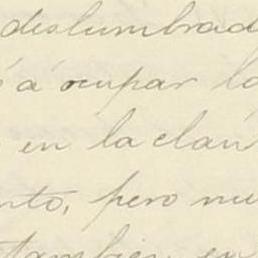 deslumbrad
á ocupar la
en la clau
nto, pero nu
tambien en